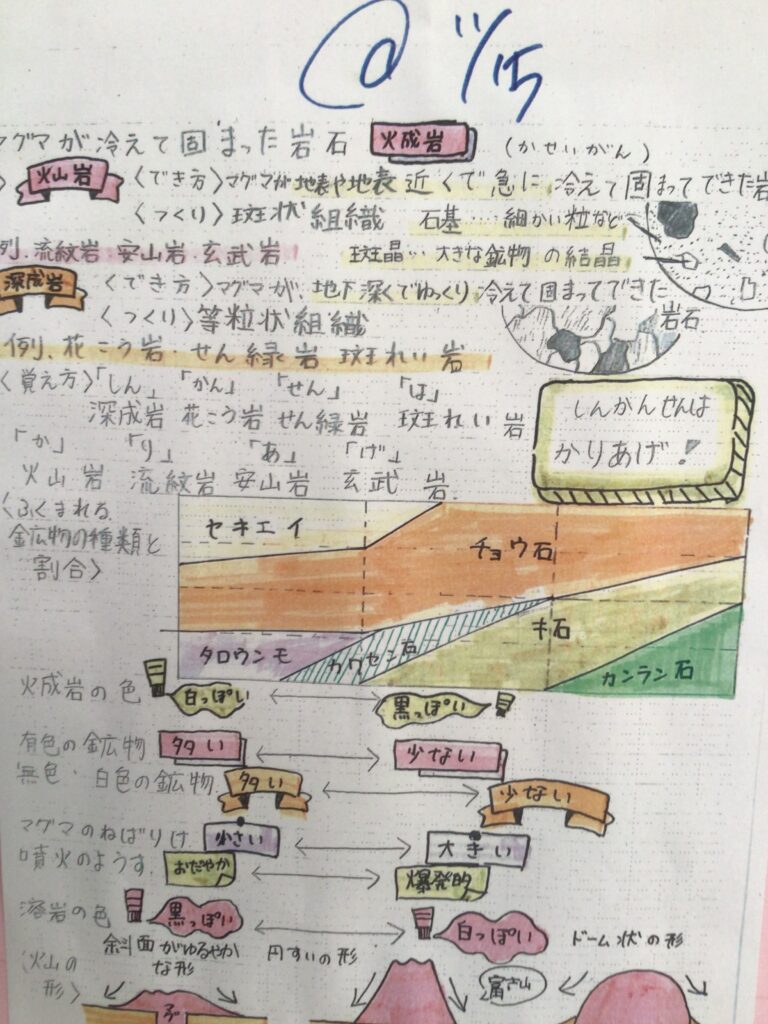 11/15
マグマが冷えて固まった岩石 火成岩 (かせいがん)
火山岩 〈でき方〉マグマが地表や地表近くで急に冷えて固まってできた岩
〈つくり〉斑状組織 石基…細かい粒など
例、流紋岩・安山岩・玄武岩 斑晶…大きな鉱物の結晶
深成岩 〈でき方〉マグマが、地下深くでゆっくり冷えて固まってできた
岩石
〈つくり〉等粒状組織
例、花こう岩・せん緑岩 斑れい岩
〈覚え方〉「しん」 「かん」 「せん」 「は」
深成岩 花こう岩 せん緑岩 斑れい岩
しんかんせんは
かりあげ!
「か」 「り」 「あ」 「げ」
火山岩 流紋岩 安山岩 玄武岩.
〈ふくまれる
鉱物の種類と
割合〉
セキエイ
チョウ石
クロウンモ
カクセン石
キ石
カンラン石
火成岩の色 白っぽい 黒っぽい
有色の鉱物 多い 少ない
無色・白色の鉱物 多い 少ない
マグマのねばりけ 小さい 大きい
噴火のようす. おだやか 爆発的
溶岩の色 黒っぽい 白っぽい
(火山の
形〉
斜面がゆるやか
な形
円すいの形
ドーム状の形
富士山